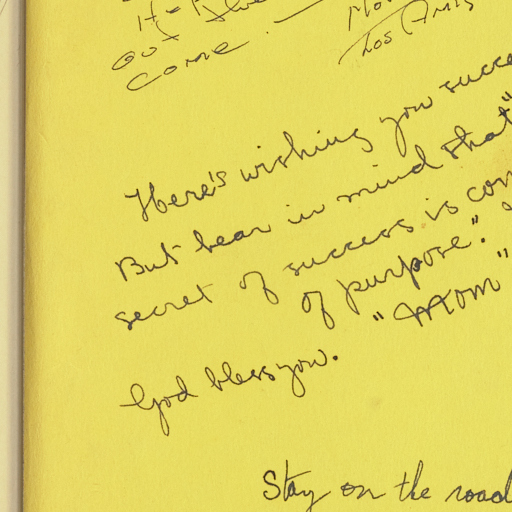 out
come.
Los
Here's wishing you succe
But bear in mind that "
secret of success is con
of purpose".
"Mom"
God bless you.
Stay on the road